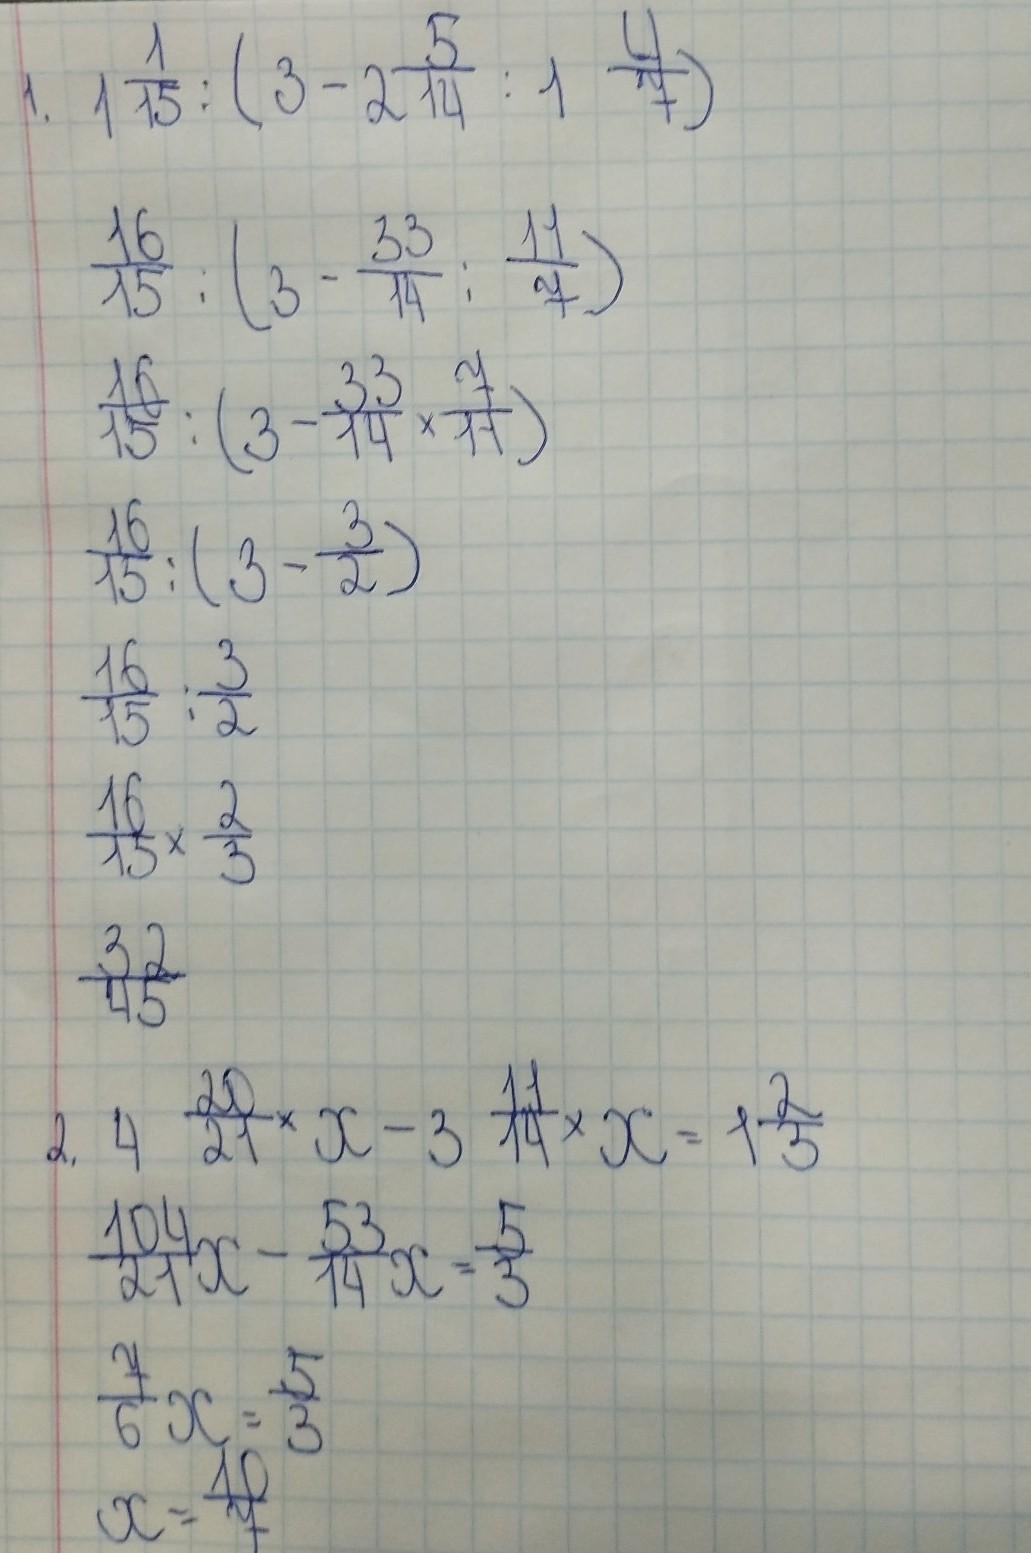 1. 1 1/15 : (3 - 2 5/14 : 1 4/7)
16/15 : (3 - 33/14 : 11/7)
16/15 : (3 - 33/14 × 7/11)
16/15 : (3 - 3/2)
16/15 : 3/2
16/15 × 2/3
32/45
2. 4 20/21 × x - 3 11/14 × x = 1 2/3
104/21 x - 53/14 x = 5/3
7/6 x = 5/3
x = 10/7